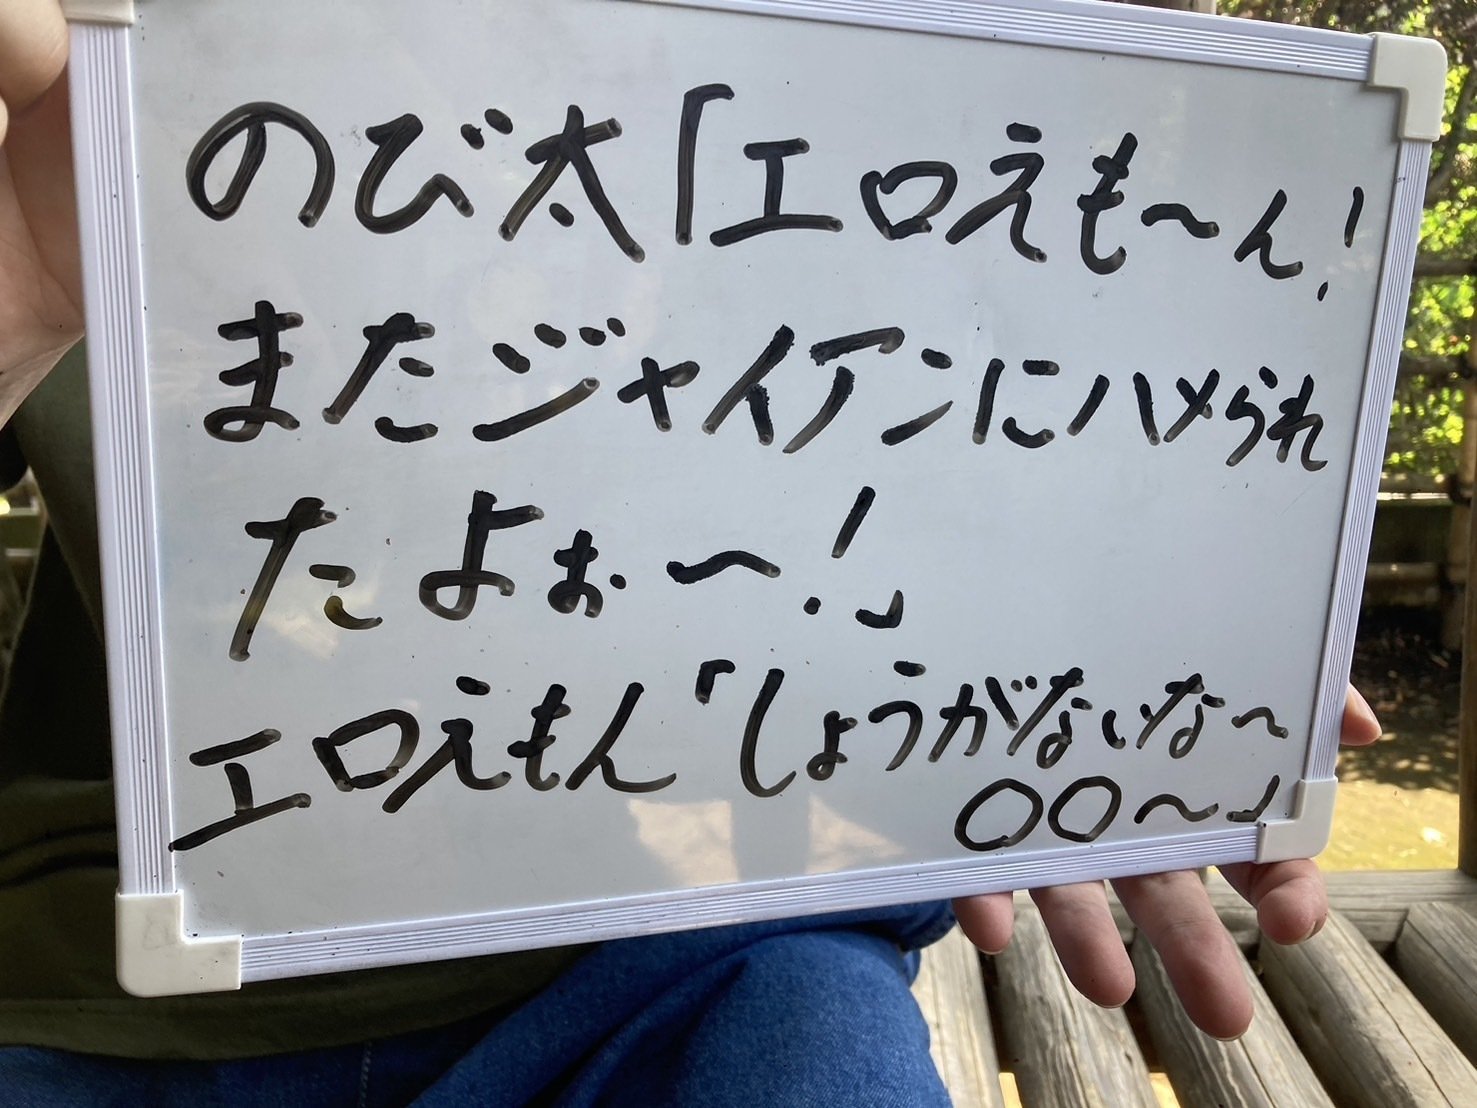 のび太「エロえも〜ん!
またジャイアンにハメられ
たよぉ〜!」
エロえもん「しょうがないな〜
〇〇〜」